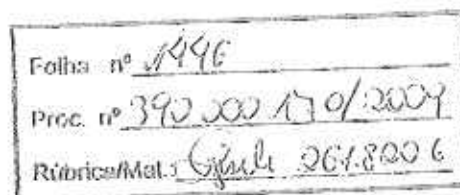 Folha nº 1446
Proc. nº 390.000.170/2009
Rúbrica/Mat.: 261.800 6